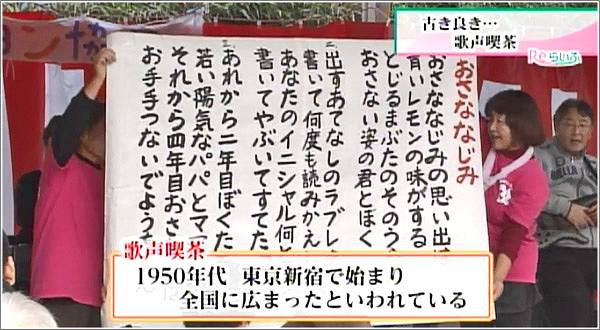 古き良き…
歌声喫茶
Reらいふ
ョン協
おさななじみ
おさななじみの思い出は
青いレモンの味がする
とじるまぶたのそのう
おさない姿の君とぼく
二出すあてなしのラブレ
書いて何度も読みかえ
あなたのイニシャル何と
書いてやぶいてすてた
三あれから二年目ぼくた
若い陽気なパパとマ
それから四年目おさ
お手手つないでよう
歌声喫茶
1950年代 東京新宿で始まり
全国に広まったといわれている